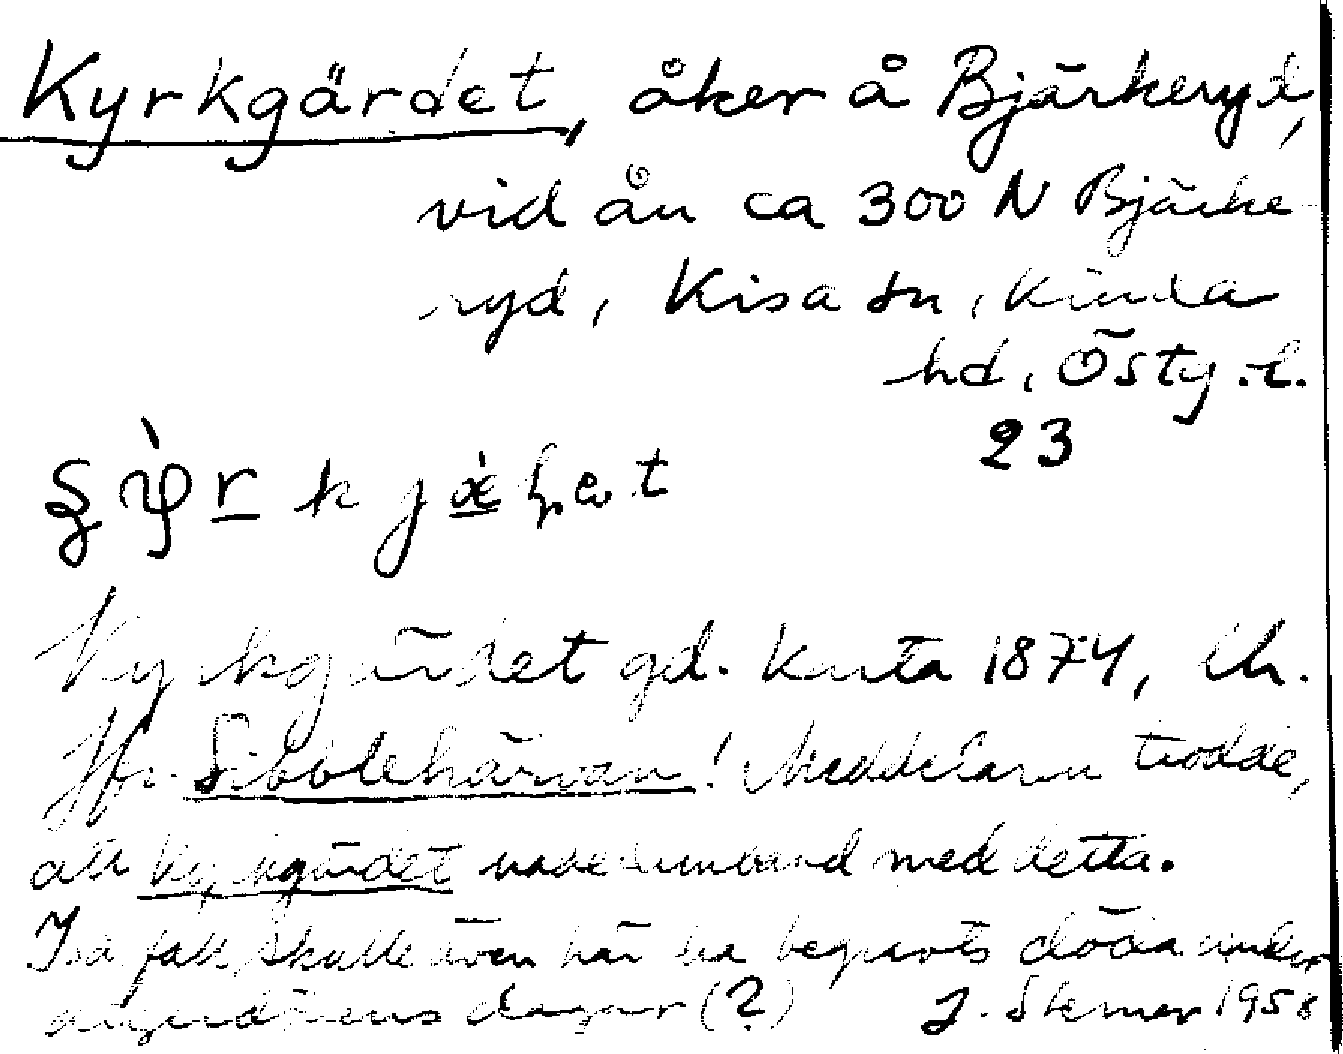 Kyrkgärdet, åker å Bjärkeryd,
vid ån ca 300 N Bjärke
ryd, Kisa sn, Kinda
hd, Östg.l.
23
Kyrkgärdet gd. Karta 1874, Lh.
Jfr. Sibblehärvan! Meddelaren trodde,
att Kyrkgärdet hade samband med detta.
I så fall skulle även här ha begravts döda under
digerdödens dagar (?) J. Sterner 1958